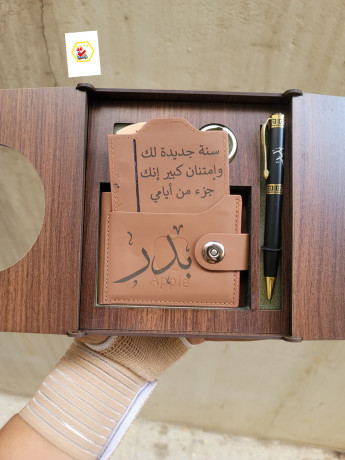 سنة جديدة لك
وإمتنان كبير إنك
جزء من أيامي
بدر
Apple